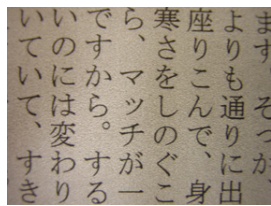 ます　そっか、
よりも通りに出
座りこんで、身
寒さをしのぐこ
ら、マッチが一
ですから。する
いのには変わり
いていて、すき